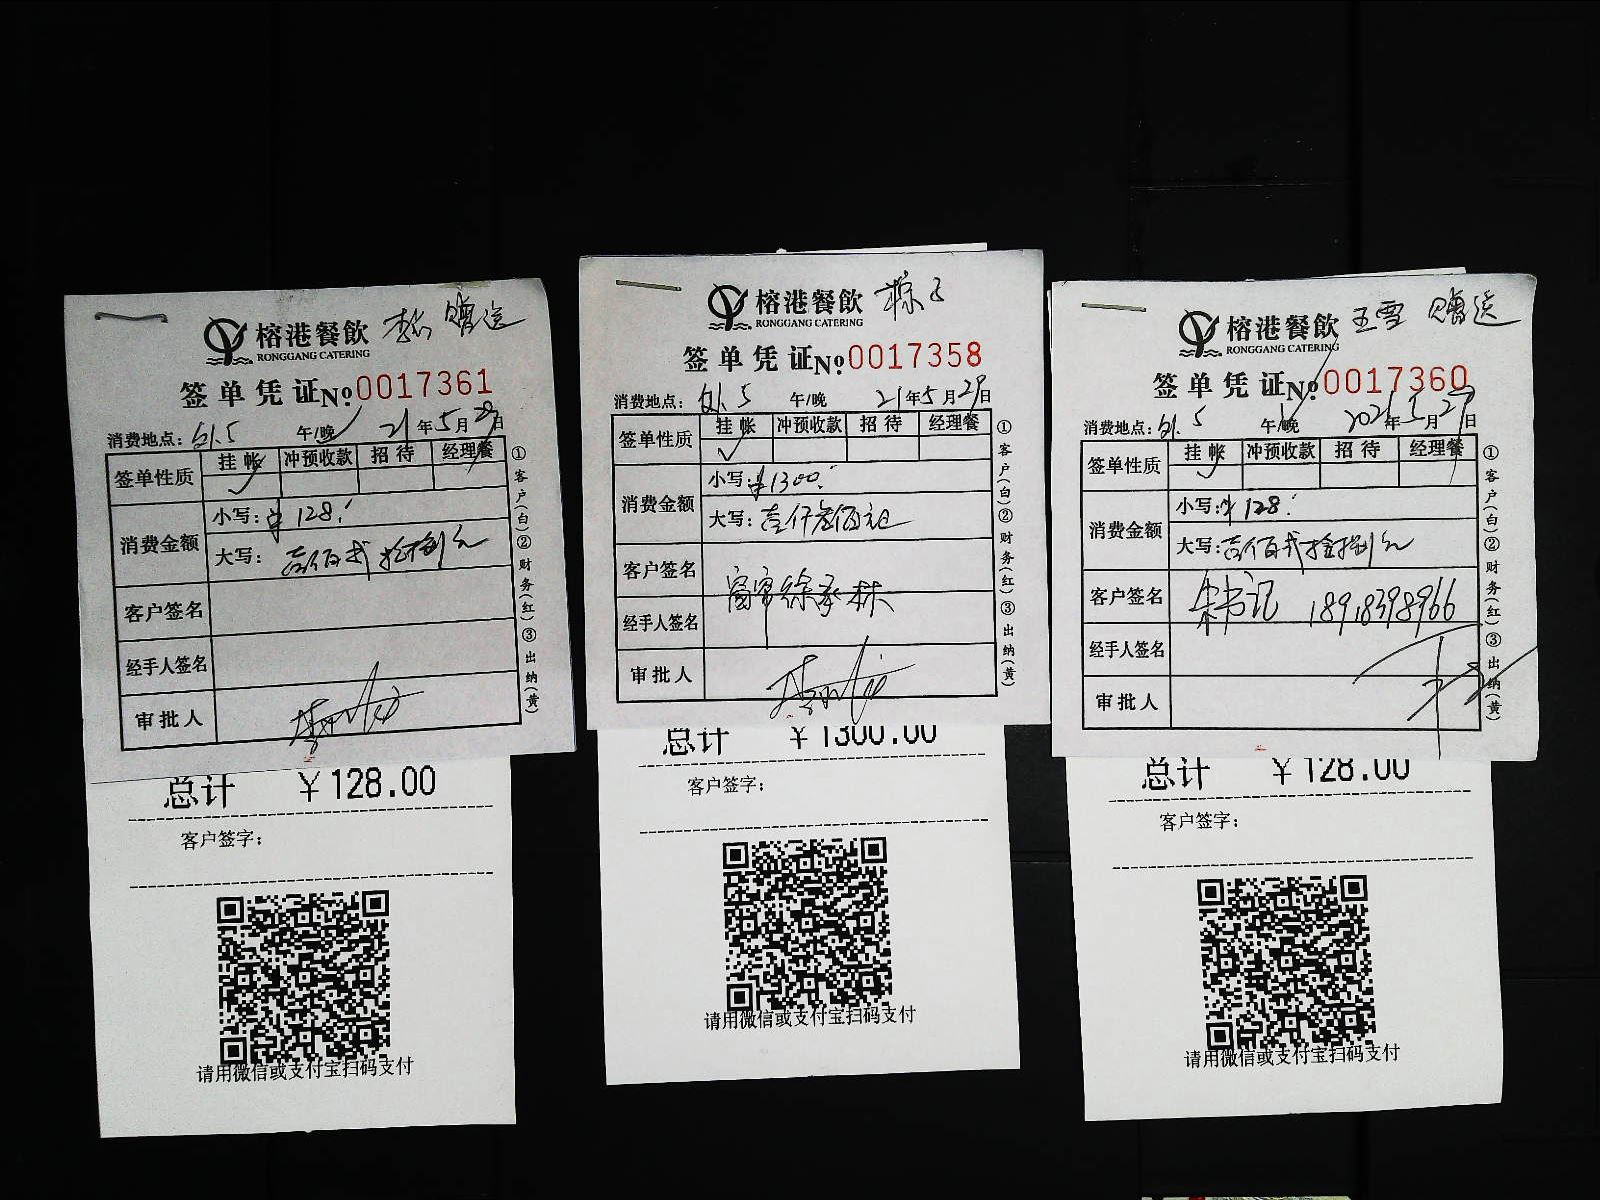 榕港餐飲 赠送
RONGGANG CATERING
签单凭证 No. 0017361
消费地点: 午/晚 21年5月29日
签单性质 挂帐 冲预收款 招待 经理餐
消费金额 小写: ¥128.
大写: 壹佰贰拾捌元
客户签名
经手人签名
审批人
①客户(白)②财务(红)③出纳(黄)
总计 ¥128.00
客户签字:
请用微信或支付宝扫码支付
榕港餐飲 粽子
RONGGANG CATERING
签单凭证 No. 0017358
消费地点: 午/晚 21年5月29日
签单性质 挂帐 冲预收款 招待 经理餐
消费金额 小写: ¥1300.
大写: 壹仟叁佰元正
客户签名
经手人签名
审批人
①客户(白)②财务(红)③出纳(黄)
总计 ¥1300.00
客户签字:
请用微信或支付宝扫码支付
榕港餐飲 王雪 赠送
RONGGANG CATERING
签单凭证 No. 0017360
消费地点: 午/晚 2021年5月29日
签单性质 挂帐 冲预收款 招待 经理餐
消费金额 小写: ¥128.
大写: 壹佰贰拾捌元
客户签名 朱书记 18918398966
经手人签名
审批人
①客户(白)②财务(红)③出纳(黄)
总计 ¥128.00
客户签字:
请用微信或支付宝扫码支付